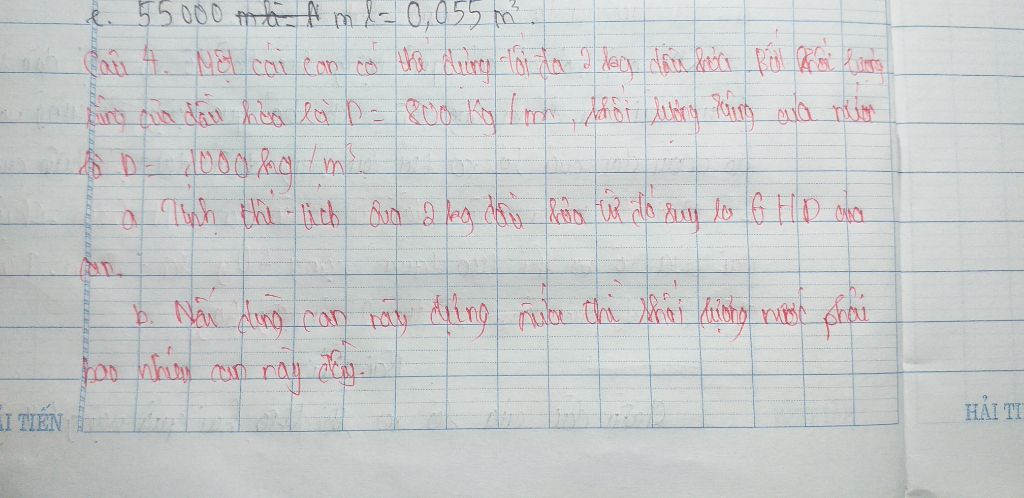 e. 55000 ml = 0,055 m³.
Câu 4. Một cái can có thể đựng tối đa 2 kg dầu hỏa. Biết khối lượng
riêng của dầu hỏa là D = 800 Kg/m, khối lượng riêng của nước
là D = 1000 kg/m³.
a Tính thể tích của 2 kg dầu hỏa từ đó suy ra GHD của
can.
b. Nếu dùng can này đựng nước thì khối lượng nước phải
bao nhiêu can này đầy.
ẢI TIẾN
HẢI TI